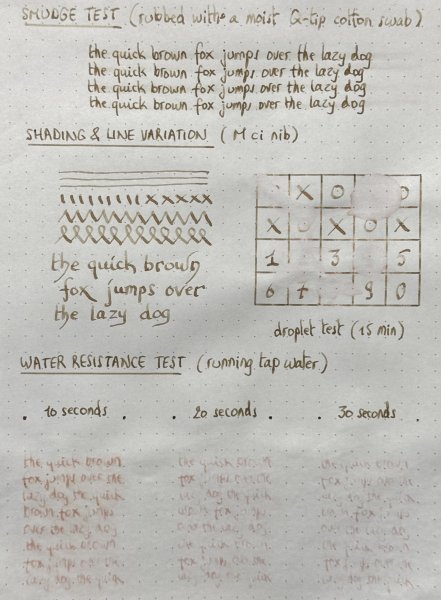 SMUDGE TEST (rubbed with a moist Q-tip cotton swab)
the quick brown fox jumps over the lazy dog
the quick brown fox jumps over the lazy dog
the quick brown fox jumps over the lazy dog
the quick brown fox jumps over the lazy dog
SHADING & LINE VARIATION (M ci nib)
the quick brown
fox jumps over
the lazy dog
X O O
X O X O X
1 3 5
6 7 9 0
droplet test (15 min)
WATER RESISTANCE TEST (running tap water)
10 seconds 20 seconds 30 seconds
the quick brown the quick brown the quick brown
fox jumps over the fox jumps over the fox jumps over the
lazy dog the quick lazy dog the quick lazy dog the quick
brown fox jumps brown fox jumps brown fox jumps
over the lazy dog over the lazy dog over the lazy dog
the quick brown the quick brown the quick brown
fox jumps over the fox jumps over the fox jumps over the
lazy dog the quick lazy dog the quick lazy dog the quick